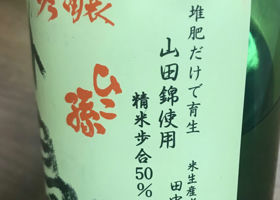 堆肥だけで育生
山田錦使用
精米歩合50%
米生産者
田中
吟醸
ひこ孫